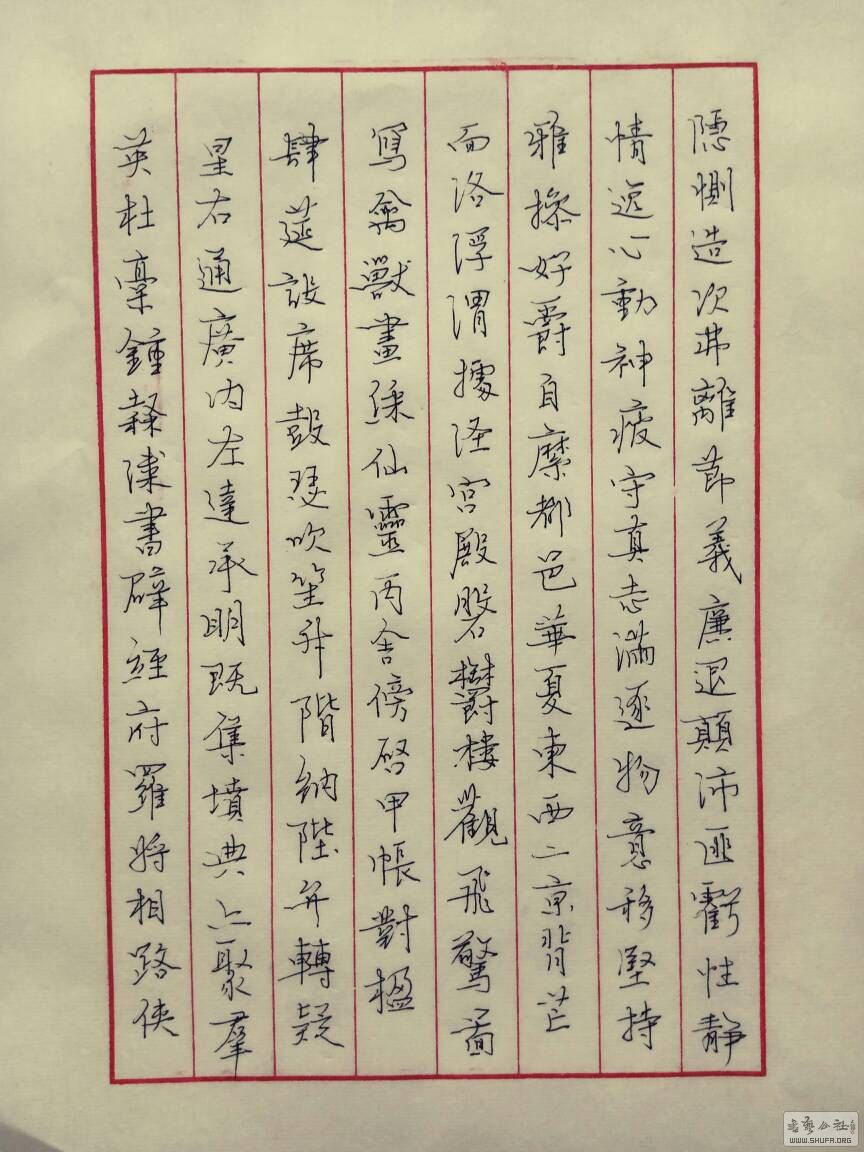 隱惻造次弗離節義廉退顛沛匪虧性靜
情逸心動神疲守真志滿逐物意移堅持
雅操好爵自縻都邑華夏東西二京背芒
面洛浮渭據涇宮殿磐欝樓觀飛驚啚
寫禽獸畫綵仙靈丙舍傍啓甲帳對楹
肆莚設席鼓瑟吹笙升階納陛弁轉疑
星右通廣內左達承明既集墳典亦聚羣
英杜稾鍾隸漆書壁經府羅將相路俠
书艺公社
WWW.SHUFA.ORG